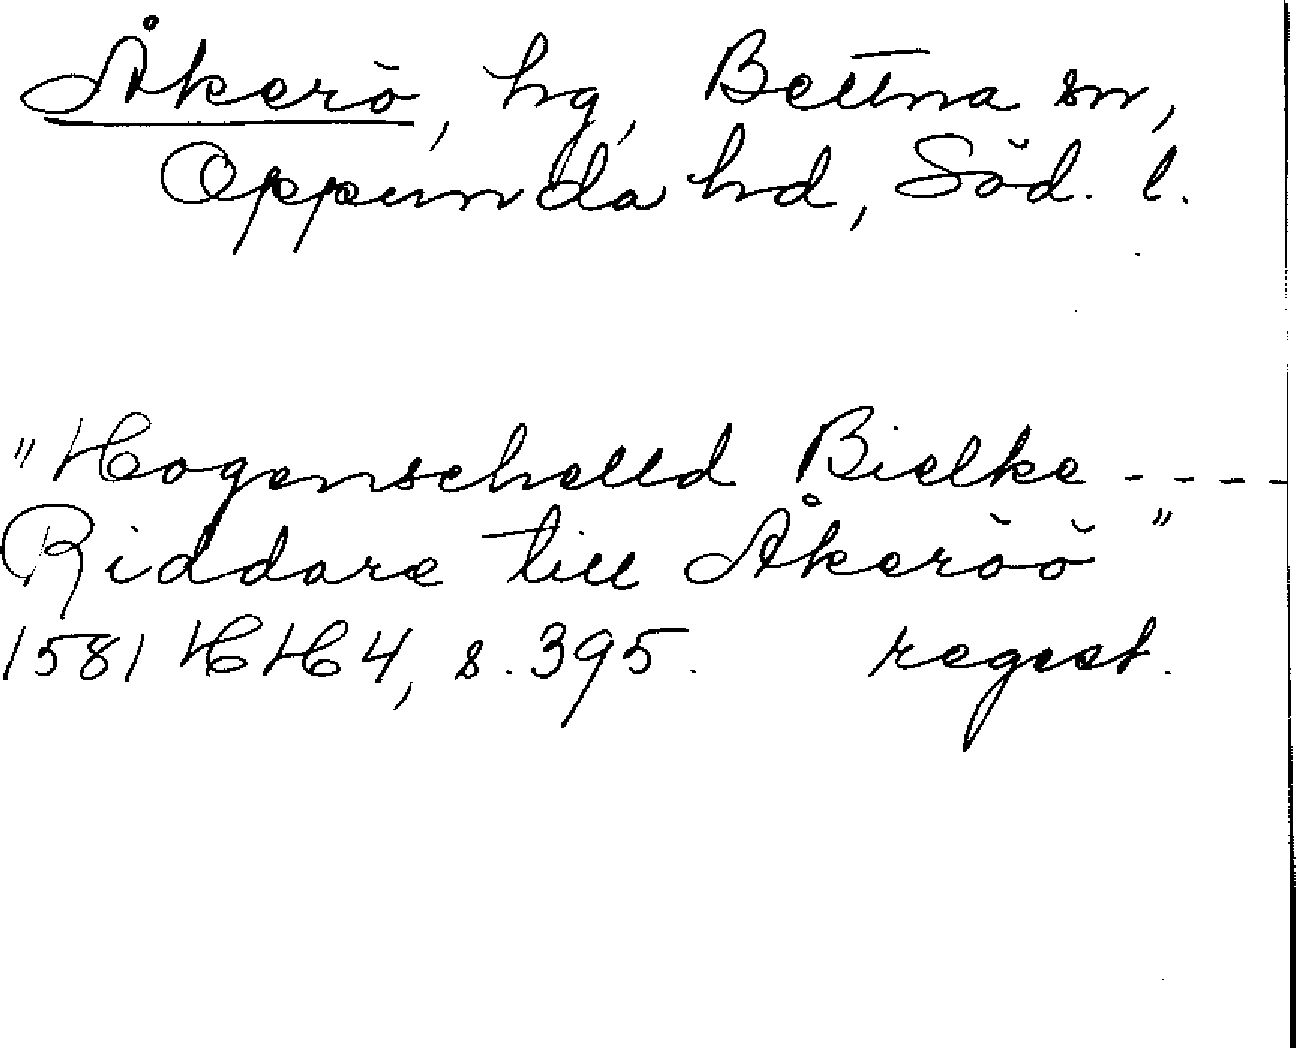 Åkerö, hg, Bettna sn,
Oppunda hd, Söd. l.
"Hogenschelld Bielke ----
Riddare till Åkeröö"
1581 HH 4, s. 395. regest.